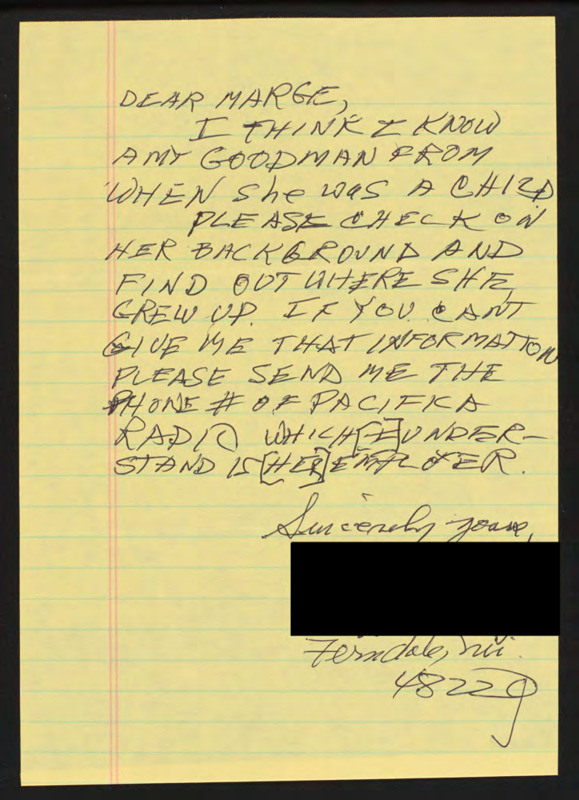 DEAR MARGE,
I THINK I KNOW
AMY GOODMAN FROM
WHEN She was A CHILD
PLEASE CHECK ON
HER BACKGROUND AND
FIND OUT WHERE SHE
GREW UP. IF YOU CANT
GIVE ME THAT INFORMATION
PLEASE SEND ME THE
PHONE # OF PACIFICA
RADIO WHICH [I] UNDER-
STAND IS [HER] EMPLOYER.
Sincerely yours,
Ferndale, Mi.
48220